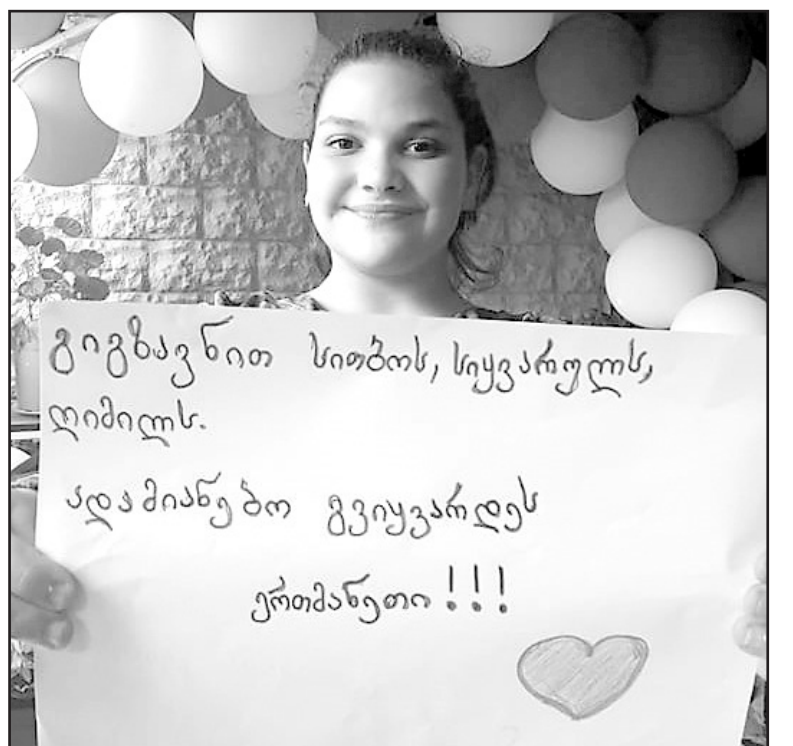 გიგზავნით სითბოს, სიყვარულს,
ღიმილს.
ადამიანებო გვიყვარდეს
ერთმანეთი!!!